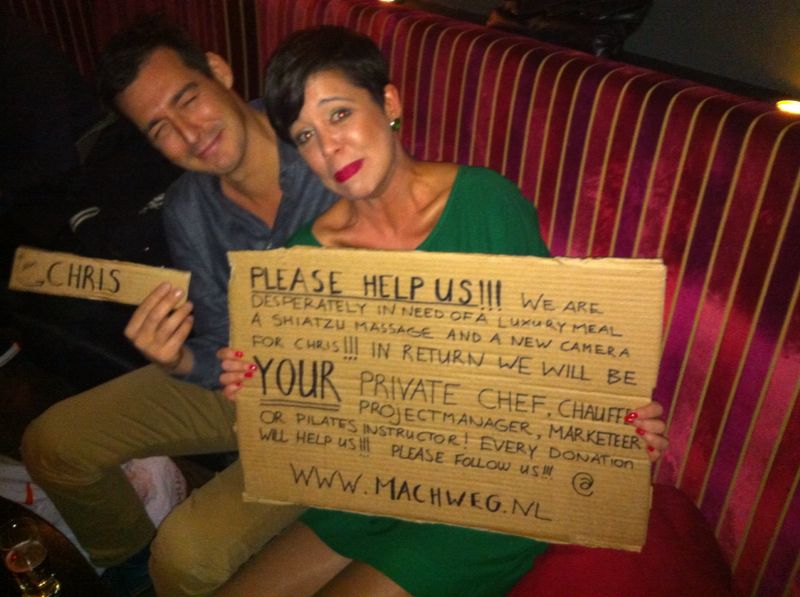 CHRIS
PLEASE HELP US!!! WE ARE
DESPERATELY IN NEED OF A LUXURY MEAL
A SHIATZU MASSAGE AND A NEW CAMERA
FOR CHRIS!!! IN RETURN WE WILL BE
YOUR PRIVATE CHEF, CHAUFFE
PROJECTMANAGER, MARKETEER
OR PILATES INSTRUCTOR! EVERY DONATION
WILL HELP US!!! PLEASE FOLLOW US!!! @
WWW.MACHWEG.NL